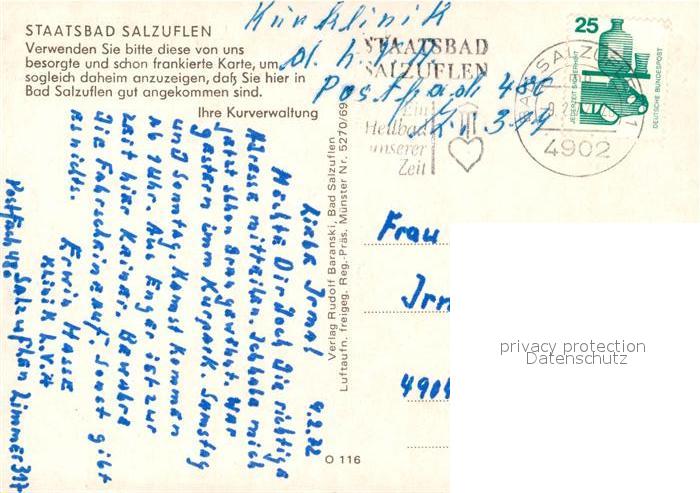 STAATSBAD SALZUFLEN
Verwenden Sie bitte diese von uns
besorgte und schon frankierte Karte, um
sogleich daheim anzuzeigen, daß Sie hier in
Bad Salzuflen gut angekommen sind.
Ihre Kurverwaltung
Kurklinik
Postfach 480
Zi 317
STAATSBAD
SALZUFLEN
Ein
Heilbad
unserer
Zeit
4902
25
JEDERZEIT SICHERHEIT
DEUTSCHE BUNDESPOST
9.2.72
Liebe Irmal
Möchte Dir doch die richtige
Adresse mitteilen. Ich habe mich
jetzt schon dran gewöhnt. War
gestern im Kurpark. Samstag
und Sonntag, kannst kommen
ab 1 Uhr. Aus Enger ist zur
Zeit hier keiner. Bewahre
die Fahrscheine auf. Sonst gibt
es nichts.
Erwin Hasse
Klinik h.V.H
Postfach 480
Salzuflen Zimmer 317
Verlag Rudolf Baranski, Bad Salzuflen
Luftaufn. freigeg. Reg.-Präs. Münster Nr. 5270/69
O 116
Frau
Irm
4904
privacy protection
Datenschutz